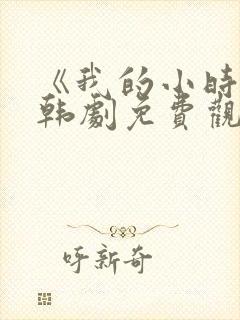 《我的小時
韩劇免費觀
呀新奇